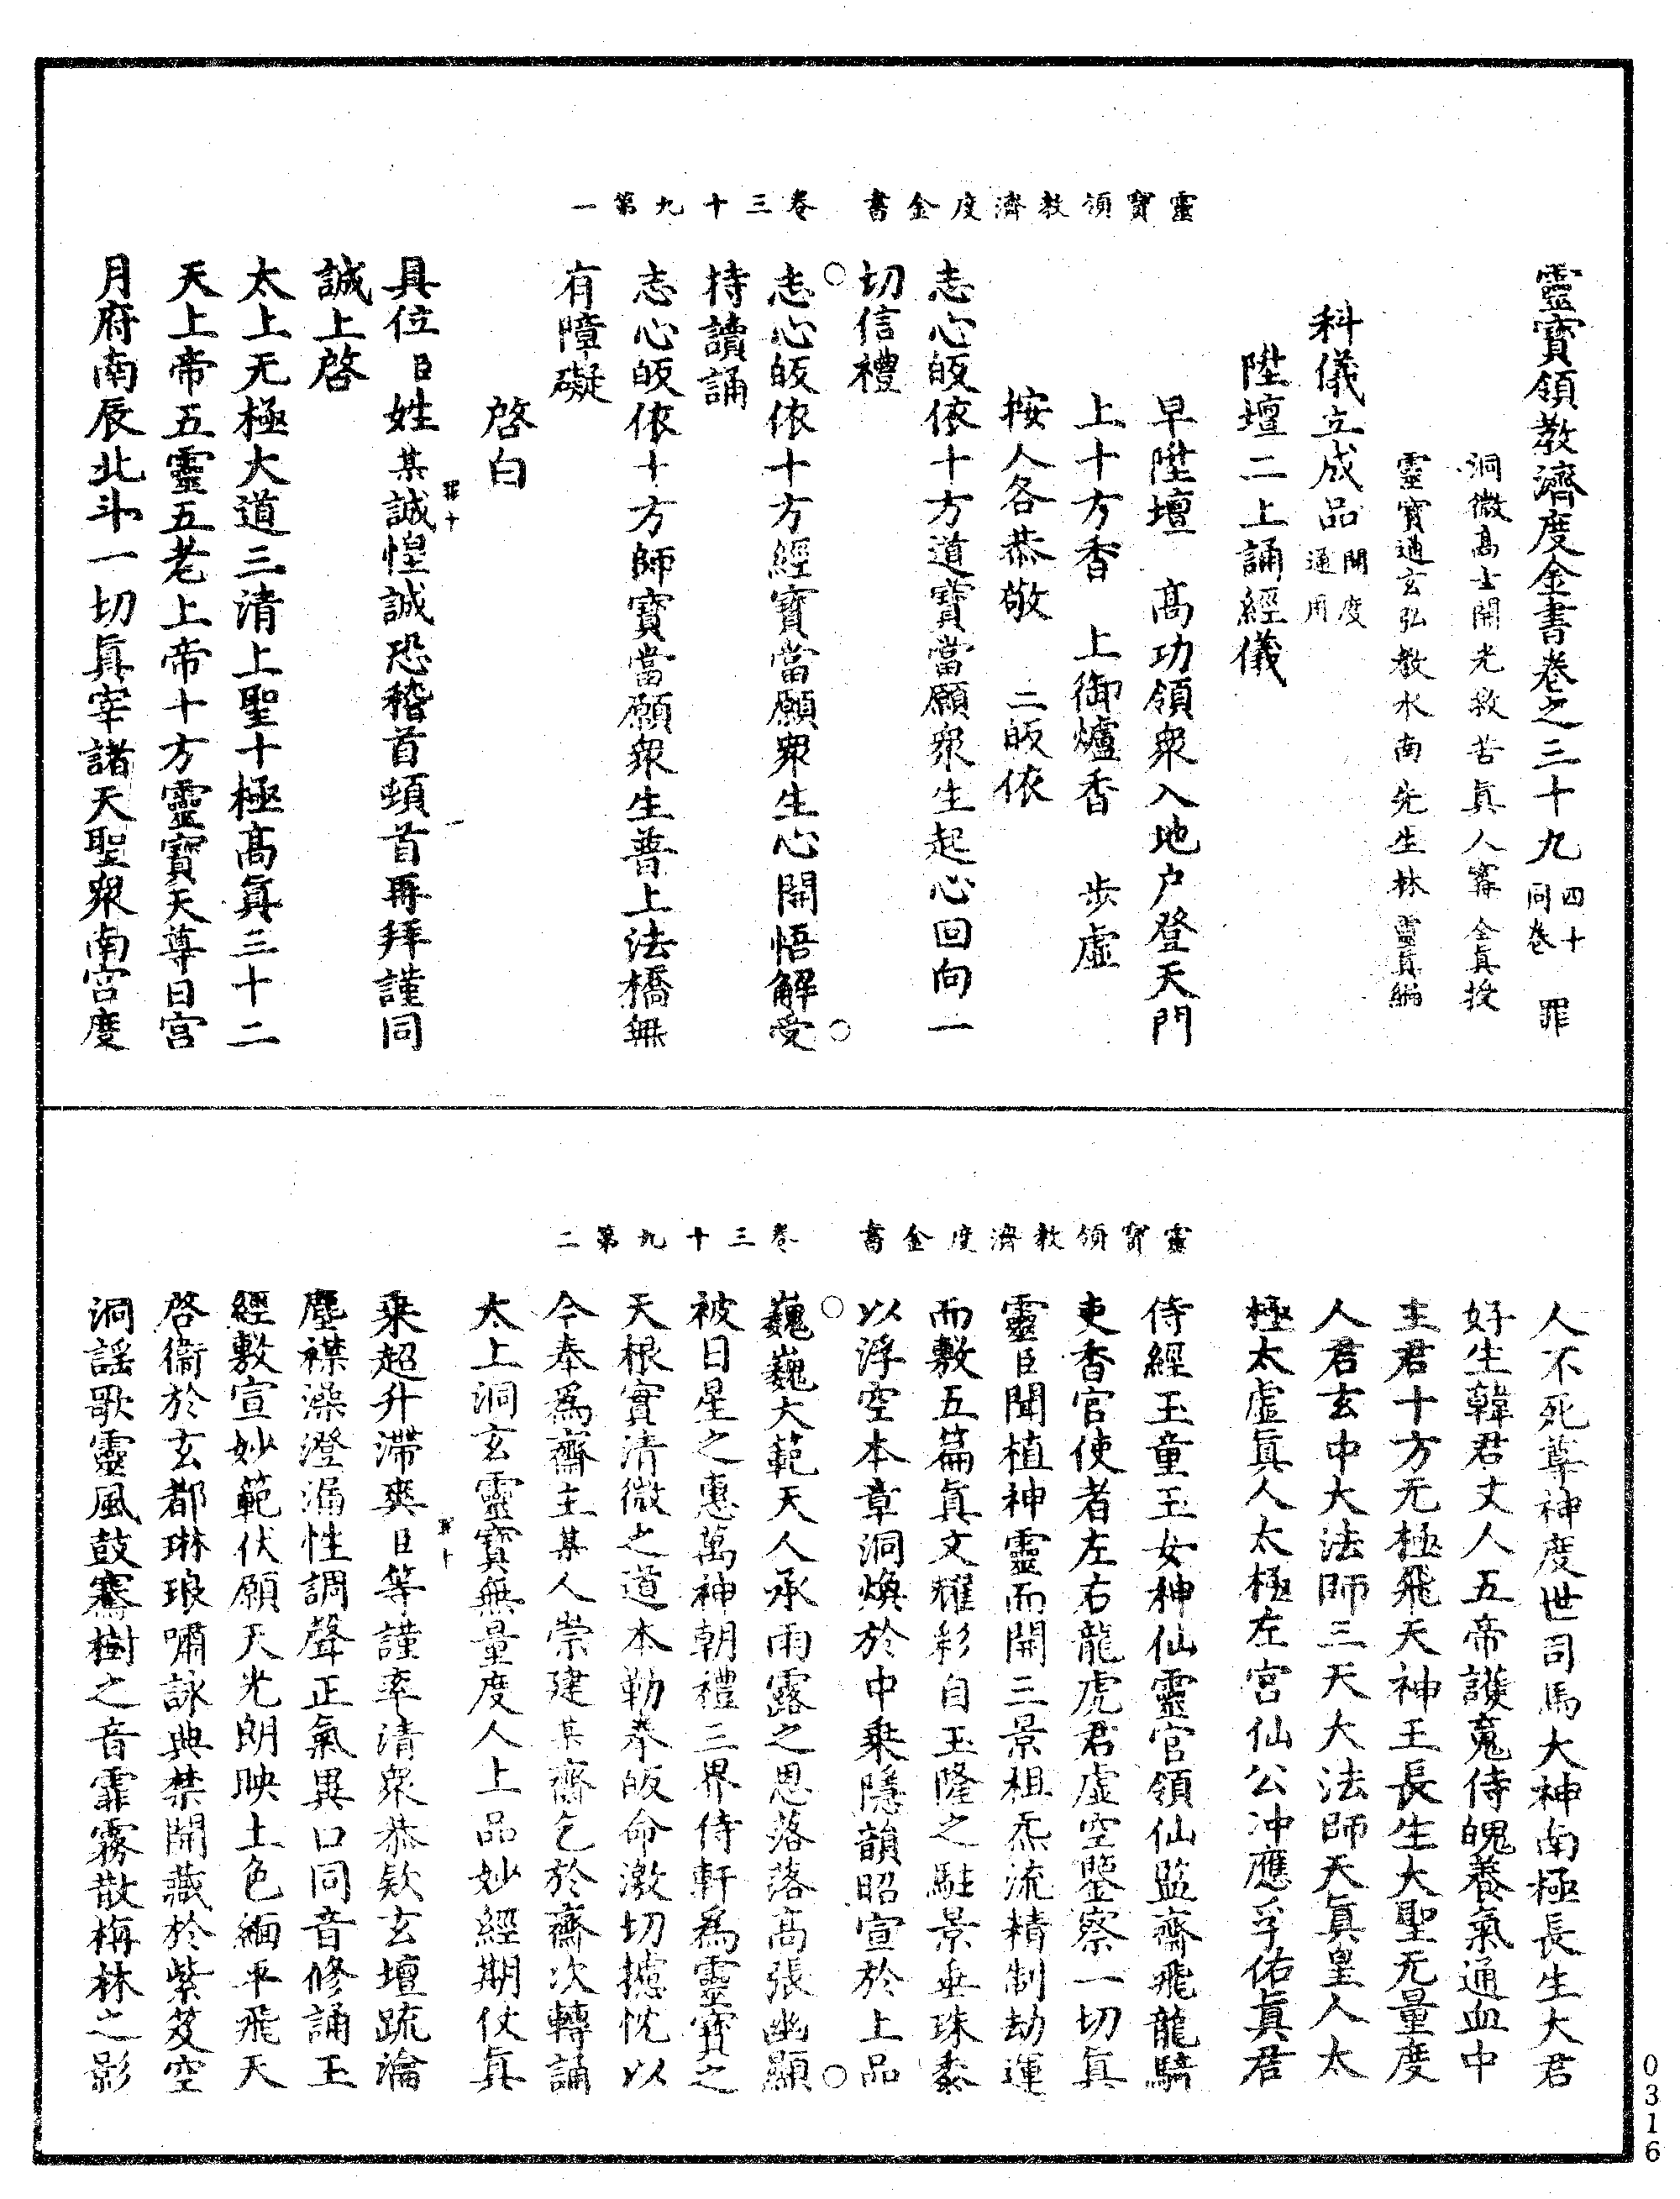 靈寶領教濟度金書　卷三十九第一
靈寶領教濟度金書卷之三十九　四十同卷　罪
洞微高士開光救苦眞人甯全眞授
靈寶通玄弘教水南先生林靈眞編
科儀立成品　開度通用
陞壇二上誦經儀
早陞壇　高功領衆入地户登天門
上十方香　上御爐香　步虛
按人各恭敬　三皈依
志心皈依十方道寶當願衆生起心回向一
切信禮
志心皈依十方經寶當願衆生心開悟解受
持讀誦
志心皈依十方師寶當願衆生普上法橋無
有障礙
啓白
具位臣姓某誠惶誠恐稽首頓首再拜謹同
誠上啓
太上无極大道三清上聖十極高眞三十二
天上帝五靈五老上帝十方靈寶天尊日宫
月府南辰北斗一切眞宰諸天聖衆南宫度
靈寶領教濟度金書　卷三十九第二
人不死尊神度世司馬大神南極長生大君
好生韓君丈人五帝護䰟侍魄養氣通血中
主君十方无極飛天神王長生大聖无量度
人君玄中大法師三天大法師天眞皇人太
極太虛眞人太極左宫仙公冲應孚佑眞君
侍經玉童玉女神仙靈官領仙監齋飛龍騎
吏香官使者左右龍虎君虛空鑒察一切眞
靈臣聞植神靈而開三景祖炁流精制劫運
而敷五篇眞文耀彩自玉隆之駐景垂珠黍
以浮空本章洞煥於中乗隱韻昭宣於上品
巍巍大範天人承雨露之恩落落高張幽顯
被日星之惠萬神朝禮三界侍軒爲靈寶之
天根實清微之道本勒奉皈命激切攄忱以
今奉爲齋主某人崇建某齋乞於齋次轉誦
太上洞玄靈寶無量度人上品妙經期仗眞
乗超升滯爽臣等謹率清衆恭欵玄壇䟽瀹
塵襟澡澄漏性調聲正氣異口同音修誦玉
經敷宣妙範伏願天光朗映土色緬平飛天
啓衞於玄都琳琅嘯詠典禁開藏於紫笈空
洞謡歌靈風鼓騫樹之音霏霧散梅林之影
0316